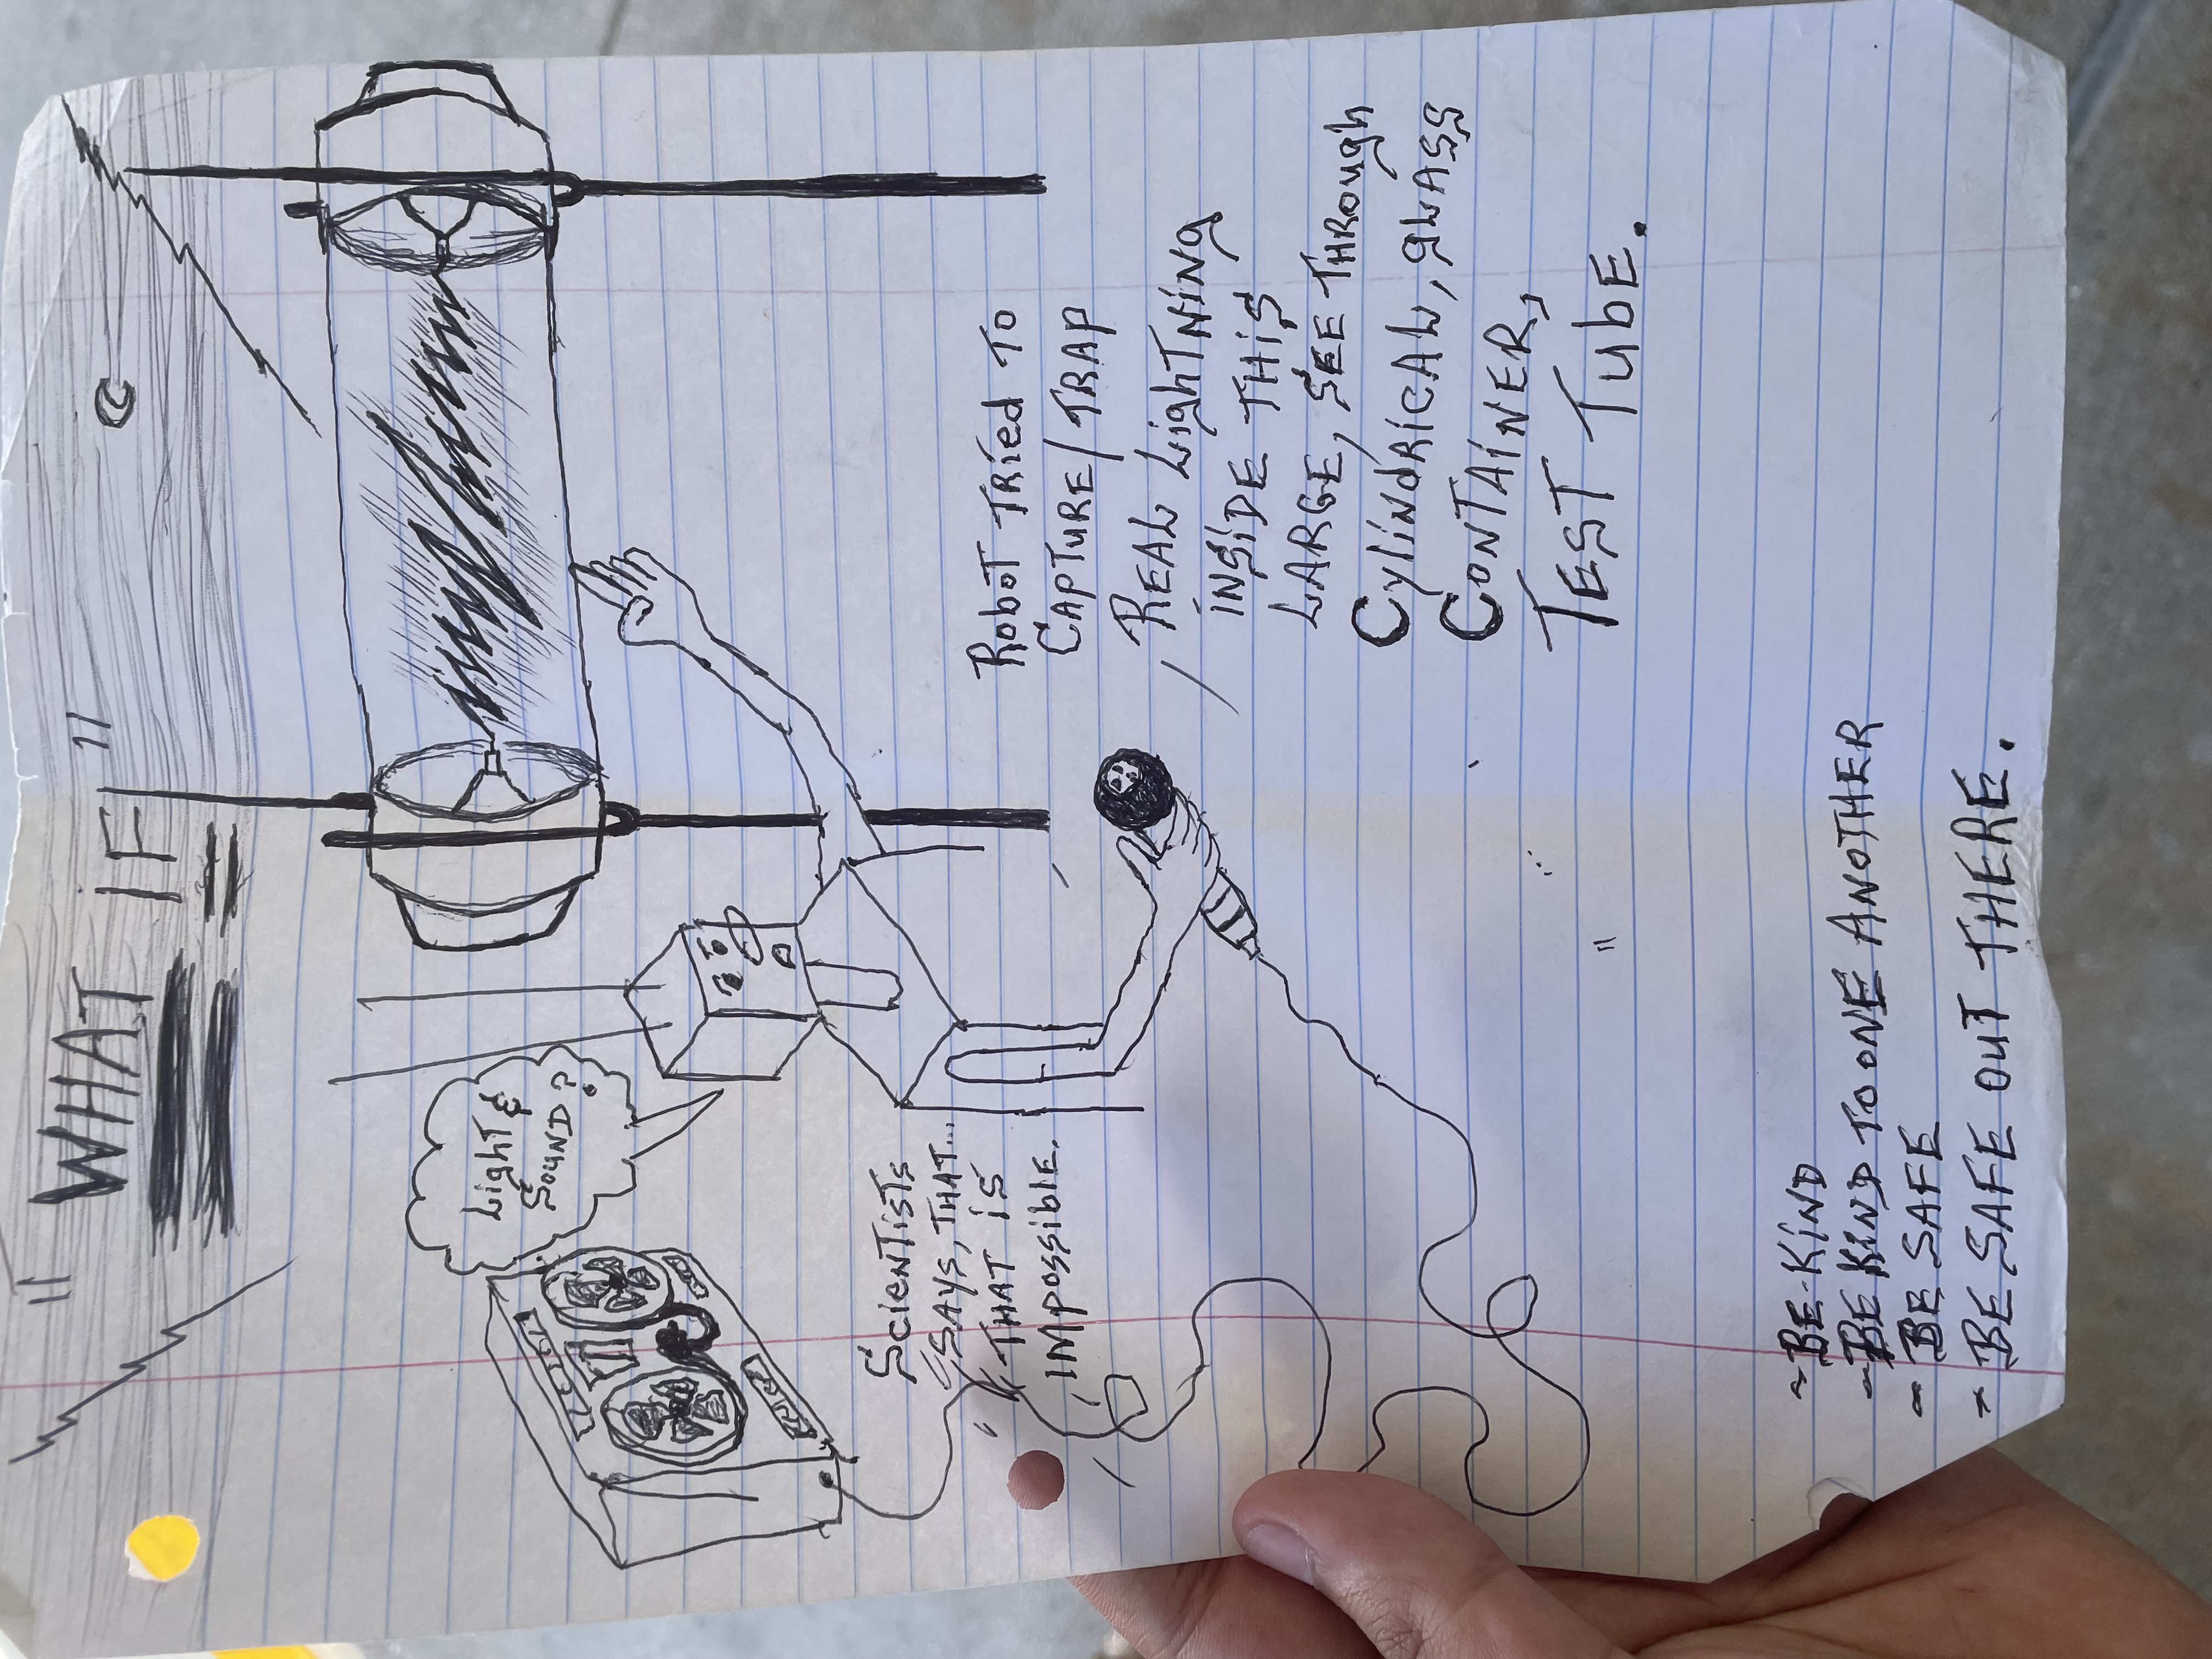 "WHAT IF"
Light &
Sound?
Scientists
says, that...
that is
impossible.
Robot tried to
Capture/Trap
Real Lightning
inside this
Large, see through
Cylindrical, glass
Container,
Test Tube.
~ Be-Kind
~ Be Kind to one another
~ Be safe
~ Be safe out there.